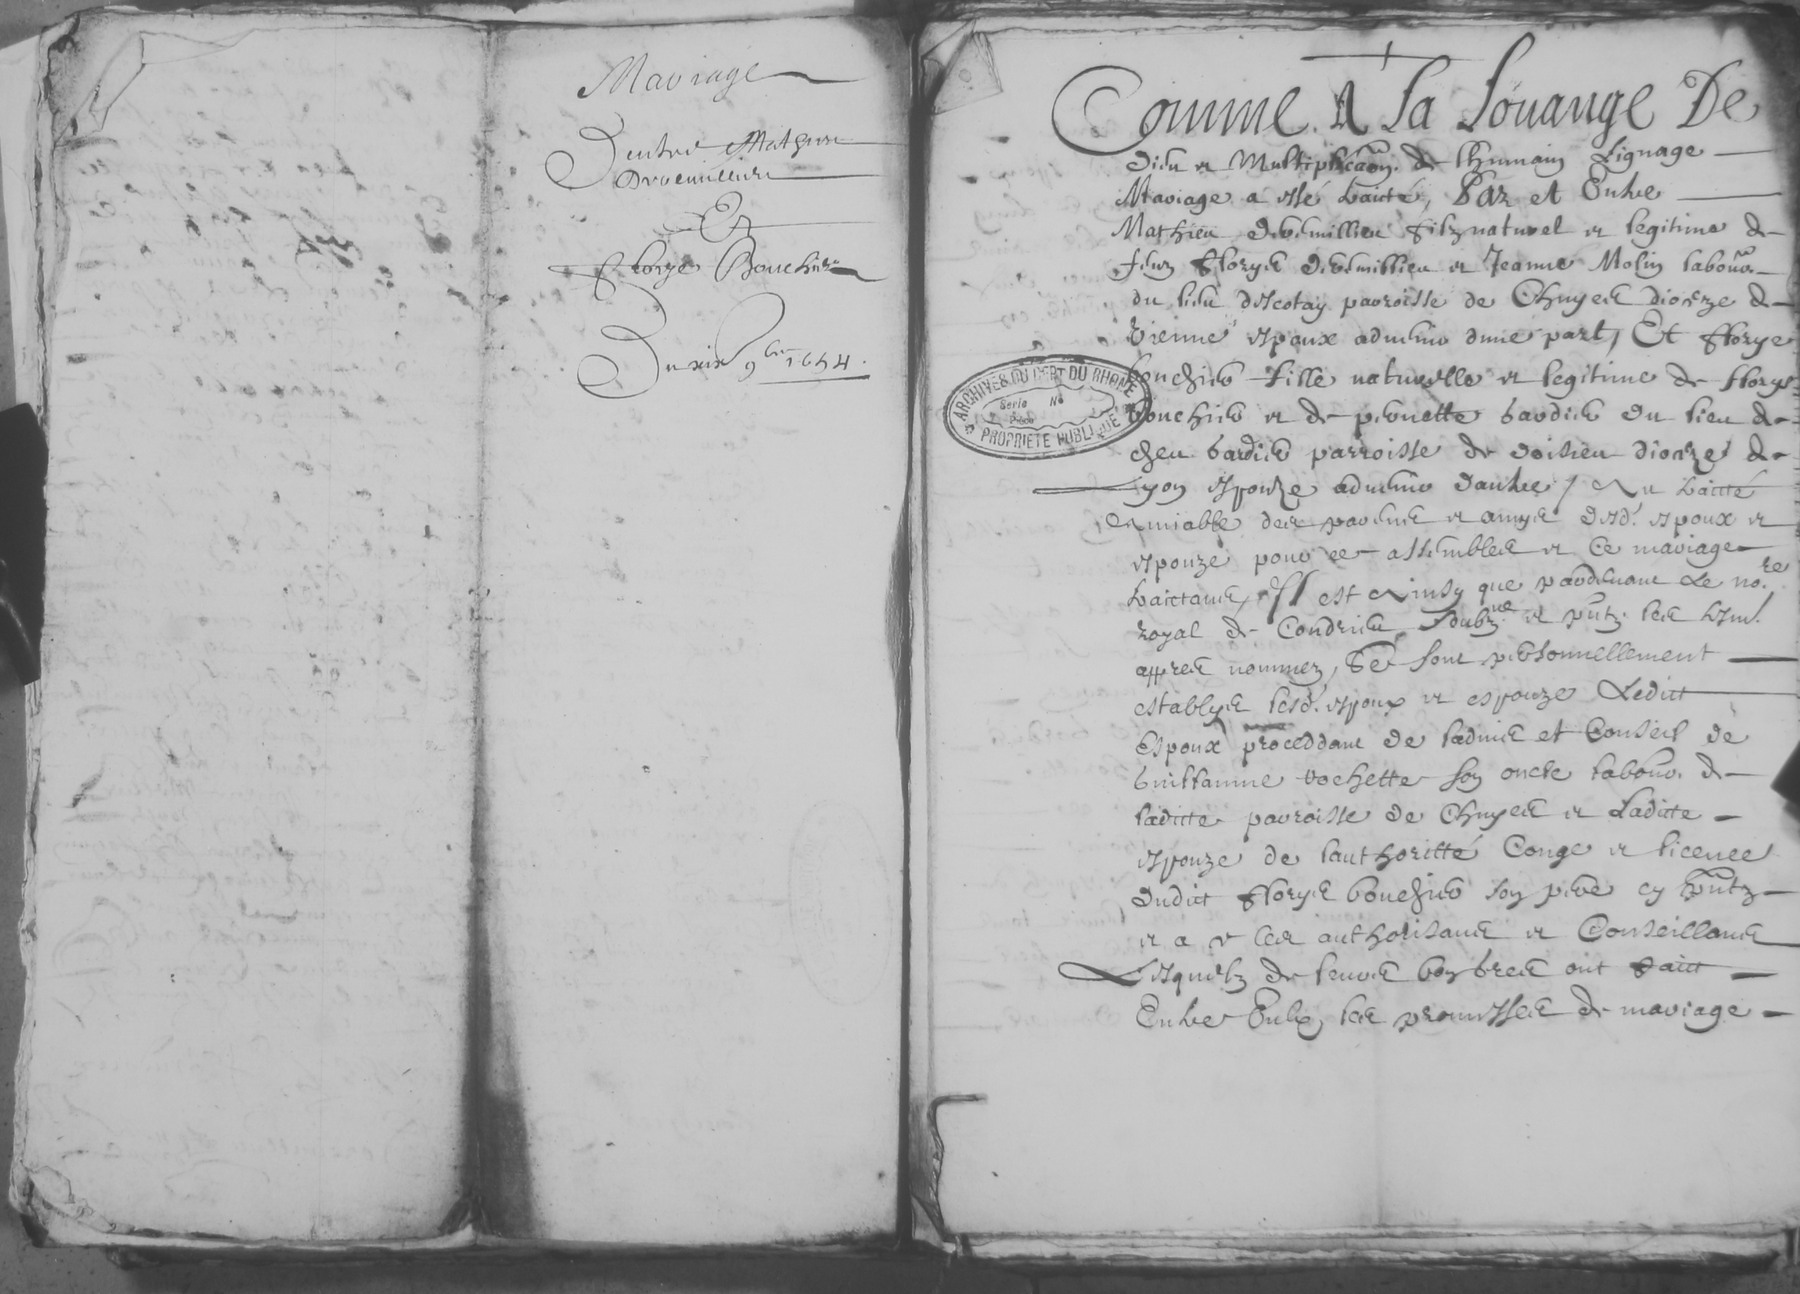 Mariage
Dentre Mathieu
Devemillieu
Et
Florye Bouchier
Du xix 9bre 1654.
Comme A La Loüange De
Dieu et Multiplicaõn de lhumain Lignage
Mariage a esté traicté, Par et Entre
Mathieu devemillieu filz naturel et legitime de
feuz fflorys devemillieu et Jeanne Molin labour
du lieu descotay parroisse de Chuyes dioceze de
Vienne espoux advenir dune part, Et fflorye
bouchier fille naturelle et legitime de fflorys
bouchier et de pernette bardier du lieu de
chez bardier parroisse de doisieu dioceze de
Lyon espouze advenir dautre / Au traicté
Amiable des parens et amys desd. espoux et
espouze pour ce assembles et Ce mariage
traictans, Il est Ainsy que pardevant Le no.re
royal de Condrieu, soubz.né et pñtz les tesm.
appres nommez, Se sont personnellement
establys lesd. espoux et espouze Ledict
Espoux proceddant de ladvis et Conseil de
Guillaume rochette son oncle labour. de
ladicte parroisse de Chuyes et Ladicte
espouze de lauthoritté Conge et licence
dudict fflorys bouchier son pere cy pñtz
et a ce les authorisans et Conseillans
Lesquelz de leurs bon grés ont faict
Entre Eulx, les promesses de mariage
ARCHIVES DU DÉPT DU RHÔNE
Serie No
PROPRIÉTÉ PUBLIQUE